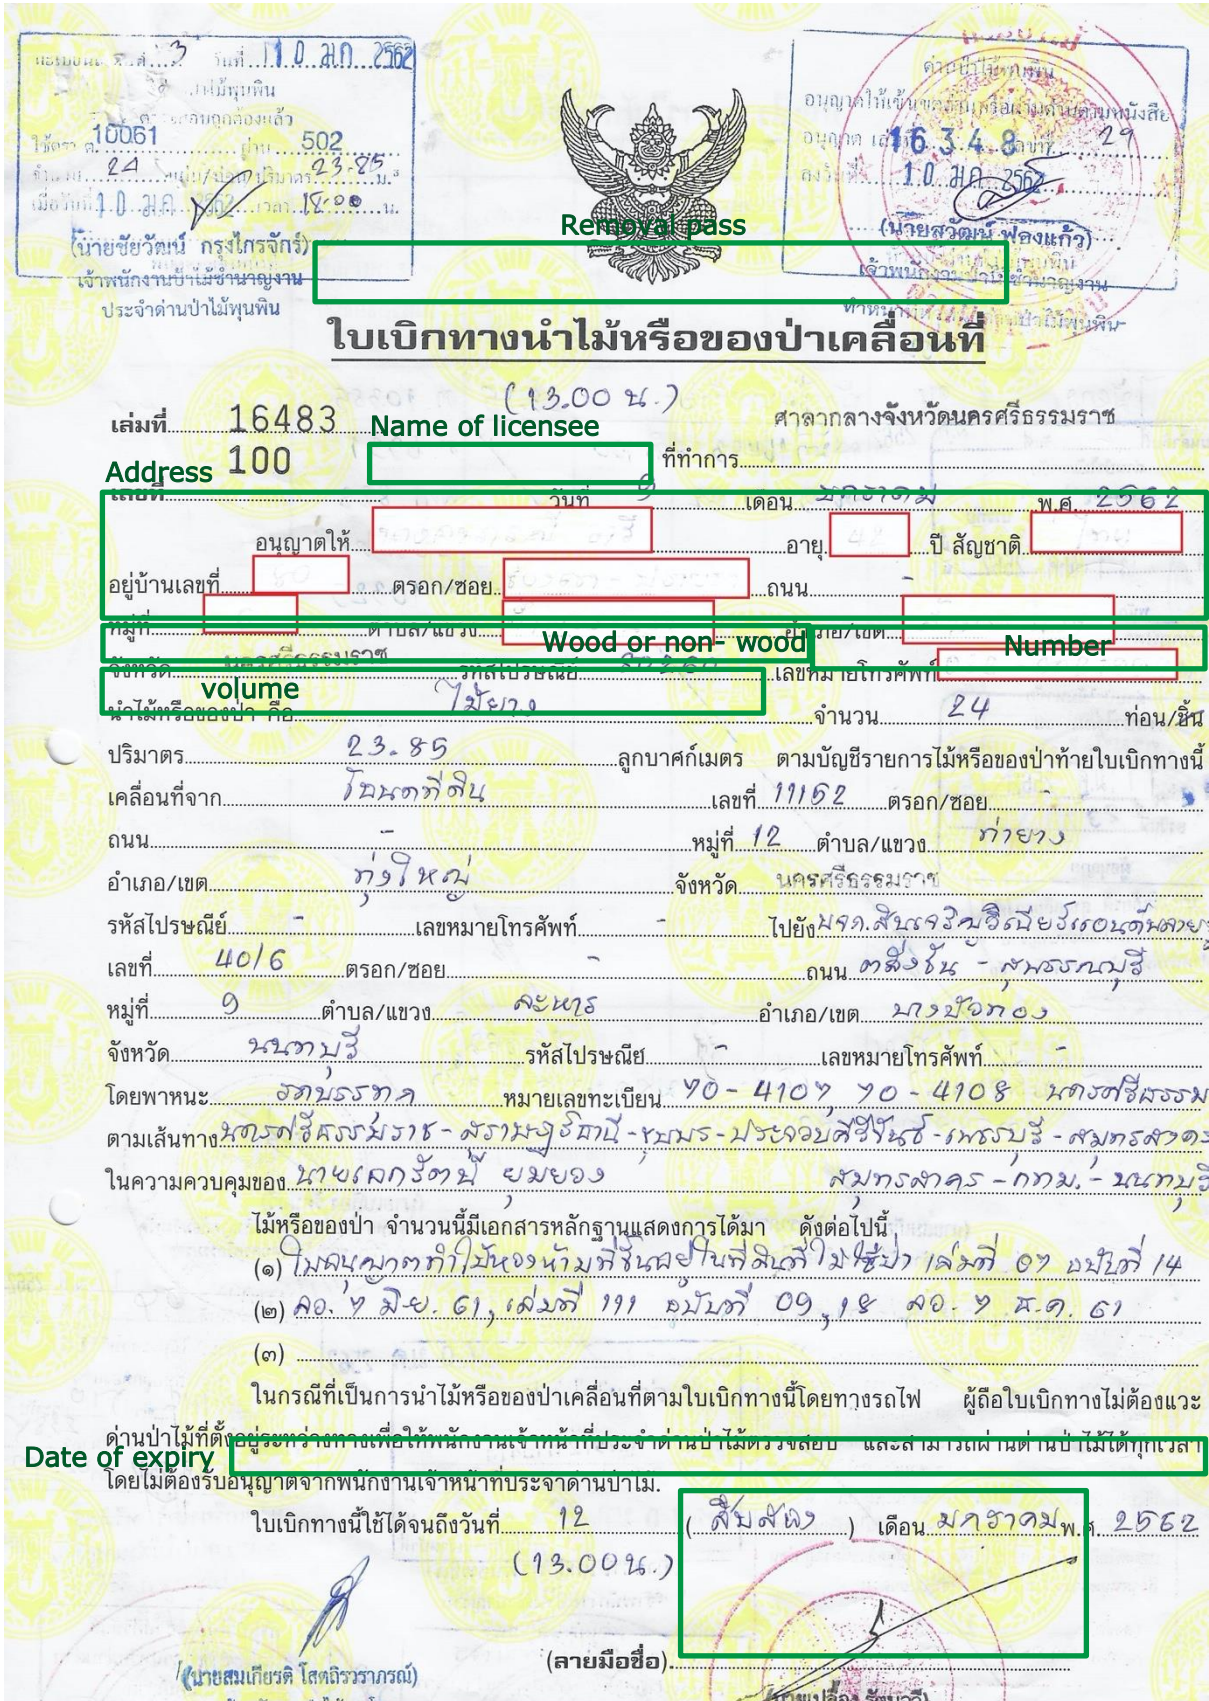 วันที่ 10 ม.ค. 2562
ไม้พุนพิน
10061 502
24 23.85 ม.³
10 ม.ค. 2562 เวลา 18.00 น.
(นายชัยวัฒน์ กรุงไกรจักร์)
เจ้าพนักงานป่าไม้ชำนาญงาน
ประจำด่านป่าไม้พุนพิน
16348 29
10 ม.ค. 2562
(นายสุวัฒน์ ฟองแก้ว)
เจ้าพนักงานป่าไม้ชำนาญงาน
Removal pass
ใบเบิกทางนำไม้หรือของป่าเคลื่อนที่
(13.00 น.)
เล่มที่ 16483 ศาลากลางจังหวัดนครศรีธรรมราช
Name of licensee
Address 100 ที่ทำการ
เลขที่ วันที่ 9 เดือน มกราคม พ.ศ. 2562
อนุญาตให้ อายุ ปี สัญชาติ
อยู่บ้านเลขที่ ตรอก/ซอย ถนน -
หมู่ที่ ตำบล/แขวง อำเภอ/เขต
Wood or non- wood Number
จังหวัด นครศรีธรรมราช รหัสไปรษณีย์ เลขหมายโทรศัพท์
volume
นำไม้หรือของป่า คือ ไม้ยาง จำนวน 24 ท่อน/ชิ้น
ปริมาตร 23.85 ลูกบาศก์เมตร ตามบัญชีรายการไม้หรือของป่าท้ายใบเบิกทางนี้
เคลื่อนที่จาก โฉนดที่ดิน เลขที่ 11152 ตรอก/ซอย -
ถนน - หมู่ที่ 12 ตำบล/แขวง ท่ายาง
อำเภอ/เขต ทุ่งใหญ่ จังหวัด นครศรีธรรมราช
รหัสไปรษณีย์ - เลขหมายโทรศัพท์ - ไปยัง บจก.สินเจริญวีเนียร์แอนด์
เลขที่ 40/6 ตรอก/ซอย - ถนน ตลิ่งชัน - สุพรรณบุรี
หมู่ที่ 9 ตำบล/แขวง ละหาร อำเภอ/เขต บางบัวทอง
จังหวัด นนทบุรี รหัสไปรษณีย์ - เลขหมายโทรศัพท์ -
โดยพาหนะ รถบรรทุก หมายเลขทะเบียน 70 - 4107, 70 - 4108 นครศรีธรรม
ตามเส้นทาง นครศรีธรรมราช - สุราษฎร์ธานี - ชุมพร - ประจวบคีรีขันธ์ - เพชรบุรี - สมุทรสงคร
ในความควบคุมของ นายเอกรัตน์ ยุมยวง สมุทรสาคร - กทม. - นนทบุรี
ไม้หรือของป่า จำนวนนี้มีเอกสารหลักฐานแสดงการได้มา ดังต่อไปนี้
(๑) ใบอนุญาตทำไม้หวงห้ามที่ขึ้นอยู่ในที่ดินที่ไม่ใช่ป่า เล่มที่ 07 ฉบับที่ 14
(๒) ลว. 7 มิ.ย. 61, เล่มที่ 111 ฉบับที่ 09, 18 ลว. 7 ธ.ค. 61
(๓)
ในกรณีที่เป็นการนำไม้หรือของป่าเคลื่อนที่ตามใบเบิกทางนี้โดยทางรถไฟ ผู้ถือใบเบิกทางไม่ต้องแวะ
ด่านป่าไม้ที่ตั้งอยู่ระหว่างทางเพื่อให้พนักงานเจ้าหน้าที่ประจำด่านป่าไม้ตรวจสอบ และสามารถผ่านด่านป่าไม้ได้ทุกเวลา
Date of expiry
โดยไม่ต้องรับอนุญาตจากพนักงานเจ้าหน้าที่ประจำด่านป่าไม้.
ใบเบิกทางนี้ใช้ได้จนถึงวันที่ 12 (สิบสอง) เดือน มกราคม พ.ศ. 2562
(13.00 น.)
(ลายมือชื่อ)
(นายสมเกียรติ โสตถิวราภรณ์)